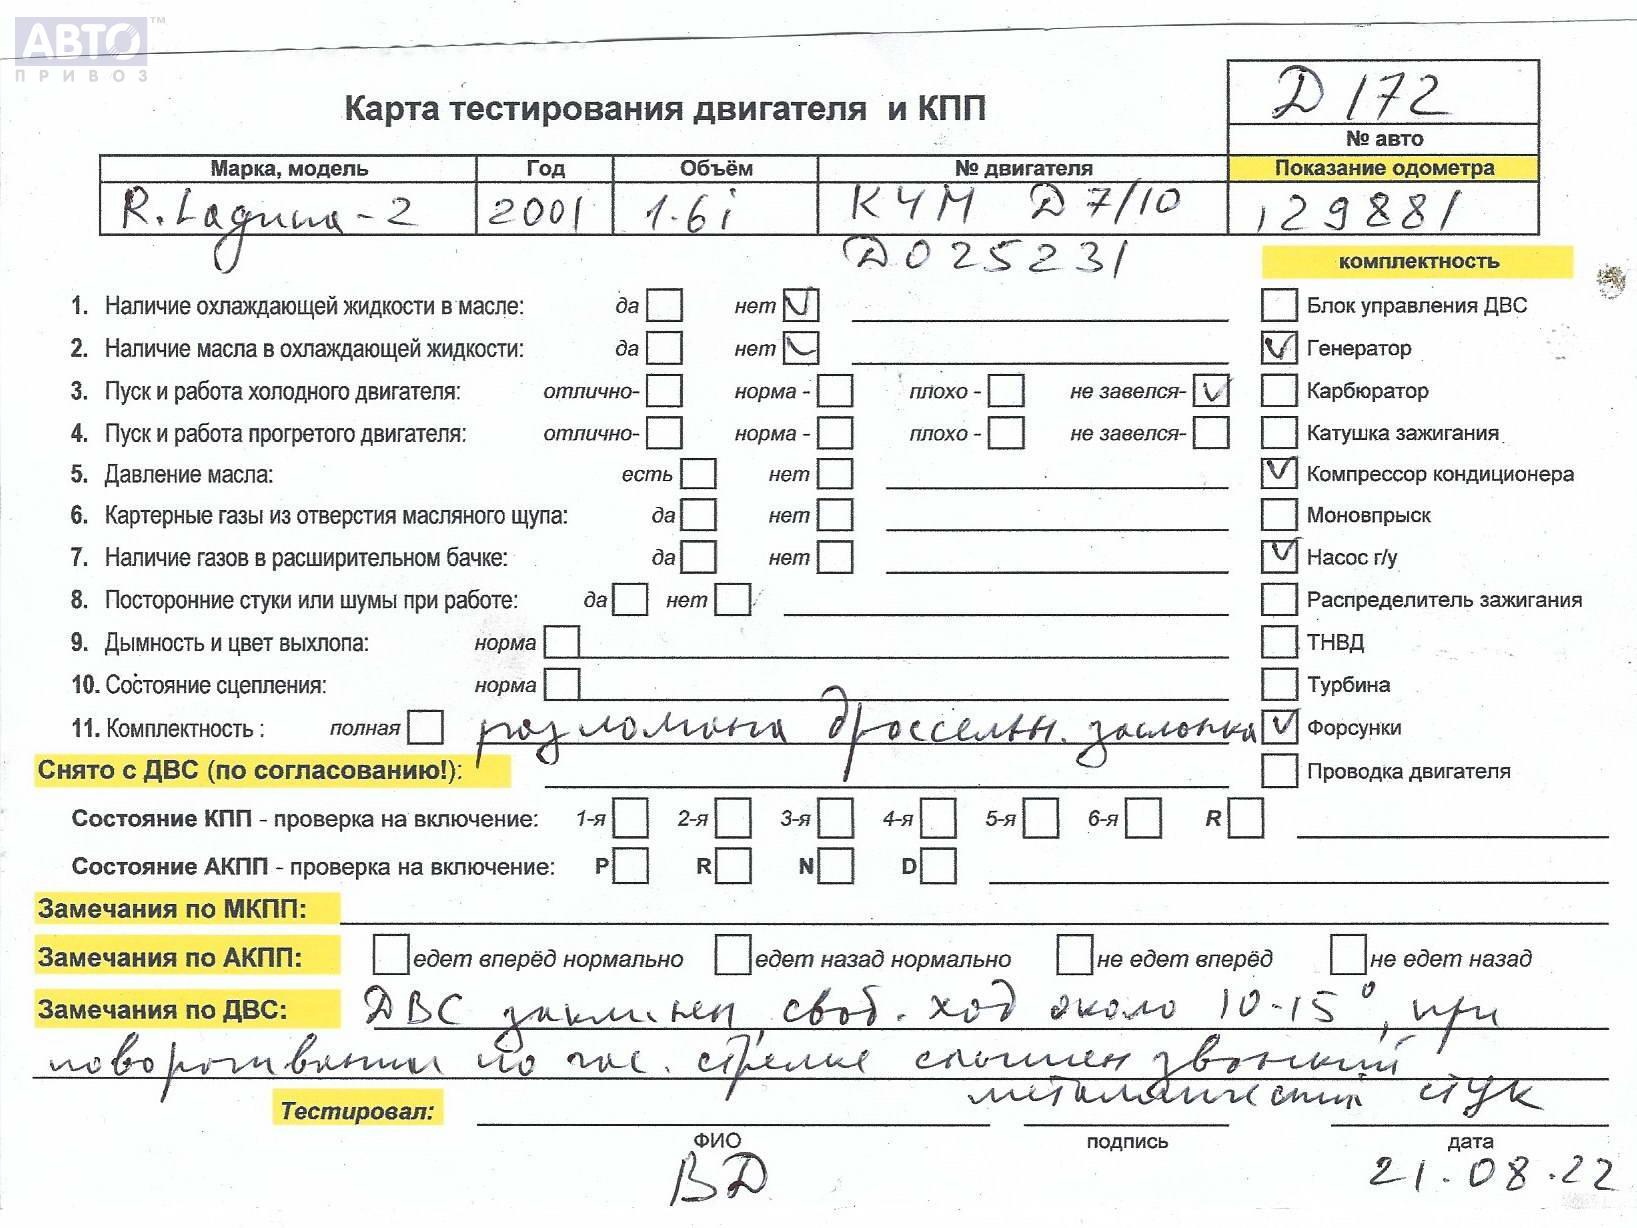 АВТО™
ПРИВОЗ
Д172
Карта тестирования двигателя и КПП
№ авто
Марка, модель Год Объём № двигателя Показание одометра
R. Laguna-2 2001 1.6i К4М Д7/10 129881
Д025231
комплектность
1. Наличие охлаждающей жидкости в масле: да нет Блок управления ДВС
2. Наличие масла в охлаждающей жидкости: да нет Генератор
3. Пуск и работа холодного двигателя: отлично- норма - плохо - не завелся- Карбюратор
4. Пуск и работа прогретого двигателя: отлично- норма - плохо - не завелся- Катушка зажигания
5. Давление масла: есть нет Компрессор кондиционера
6. Картерные газы из отверстия масляного щупа: да нет Моновпрыск
7. Наличие газов в расширительном бачке: да нет Насос г/у
8. Посторонние стуки или шумы при работе: да нет Распределитель зажигания
9. Дымность и цвет выхлопа: норма ТНВД
10. Состояние сцепления: норма Турбина
11. Комплектность : полная разломана дроссельн. заслонка Форсунки
Снято с ДВС (по согласованию!): Проводка двигателя
Состояние КПП - проверка на включение: 1-я 2-я 3-я 4-я 5-я 6-я R
Состояние АКПП - проверка на включение: P R N D
Замечания по МКПП:
Замечания по АКПП: едет вперёд нормально едет назад нормально не едет вперёд не едет назад
Замечания по ДВС: ДВС заклинен, своб. ход около 10-15°, при
поворачивании по час. стрелке слышен звонкий
металлический стук
Тестировал:
ФИО подпись дата
ВД 21.08.22